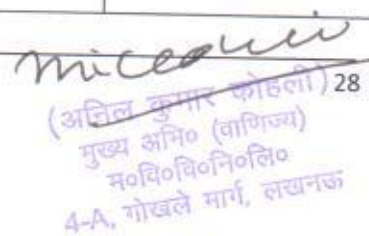 28
(अनिल कुमार कोहली)
मुख्य अभि० (वाणिज्य)
म०वि०वि०नि०लि०
4-A, गोखले मार्ग, लखनऊ